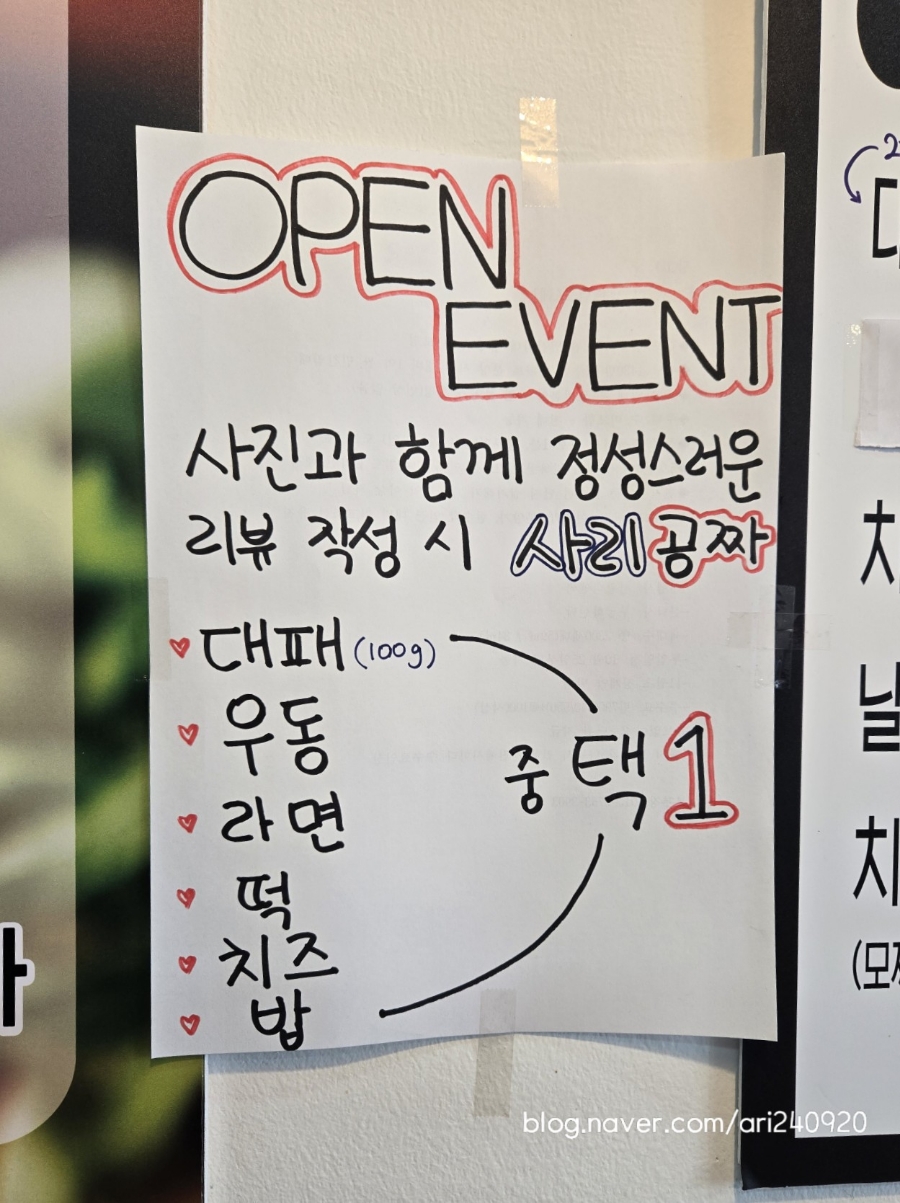 OPEN
EVENT
사진과 함께 정성스러운
리뷰 작성 시 사리공짜
대패(100g)
우동
라면
떡
치즈
밥
중 택 1
blog.naver.com/ari240920